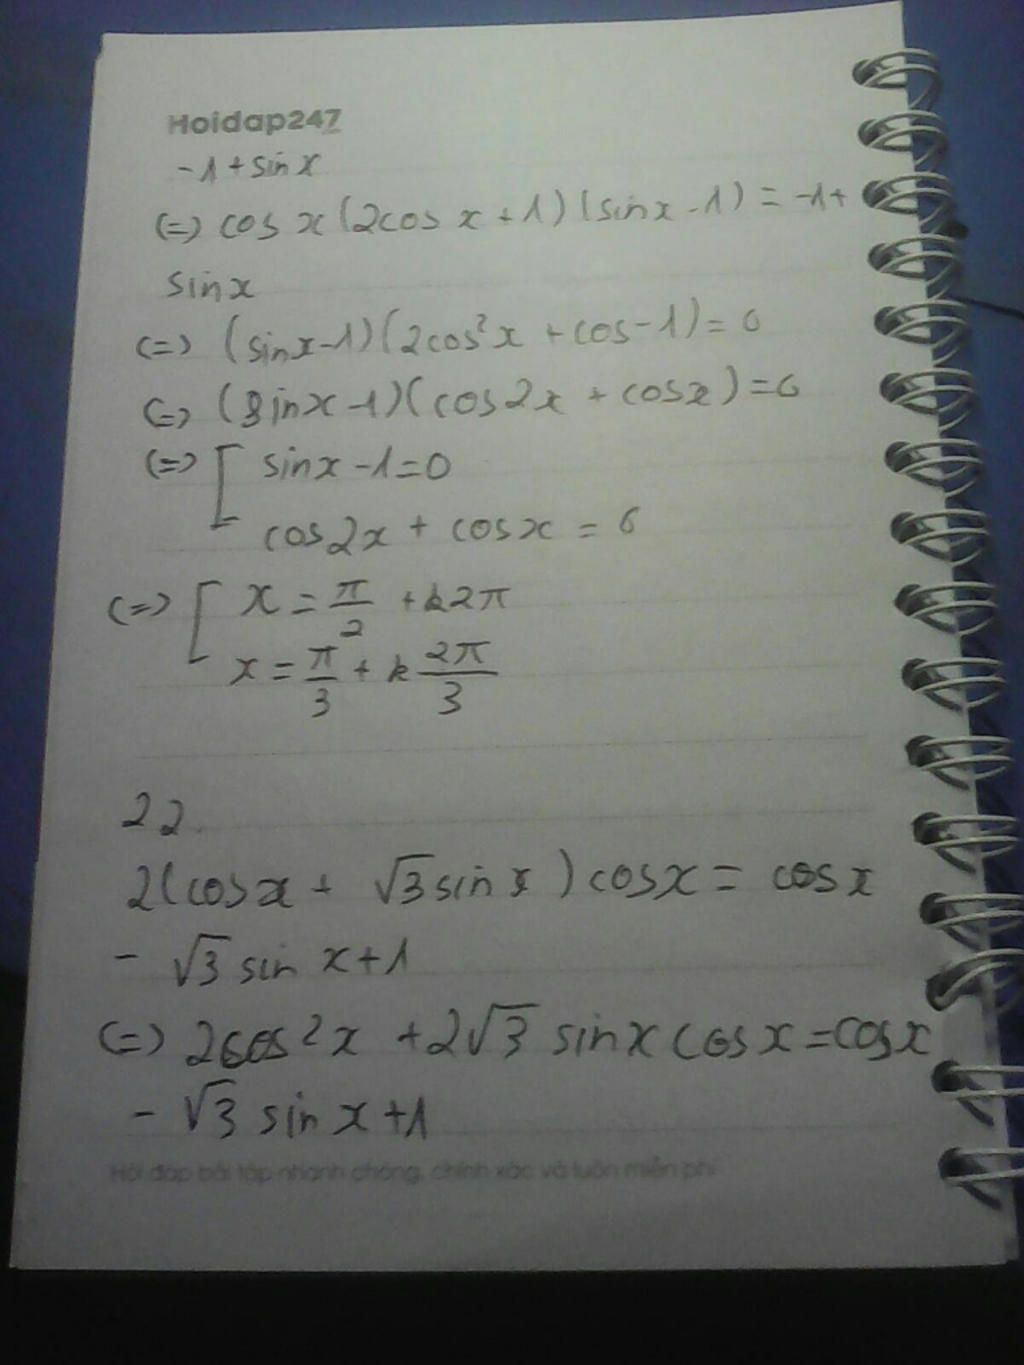 Hoidap247
-1 + sin x
(=) cos x (2cos x + 1) (sin x - 1) = -1 +
sin x
(=) (sin x - 1)(2cos²x + cos - 1) = 0
(=) (sin x - 1)(cos2x + cosx) = 0
(=) [ sinx - 1 = 0
cos2x + cosx = 0
(=) [ x = π/2 + k2π
x = π/3 + k 2π/3
22.
2(cosx + √3 sin x) cosx = cosx
- √3 sin x + 1
(=) 2cos²x + 2√3 sinx cosx = cosx
- √3 sin x + 1
Hỏi đáp bài tập nhanh chóng, chính xác và luôn miễn phí